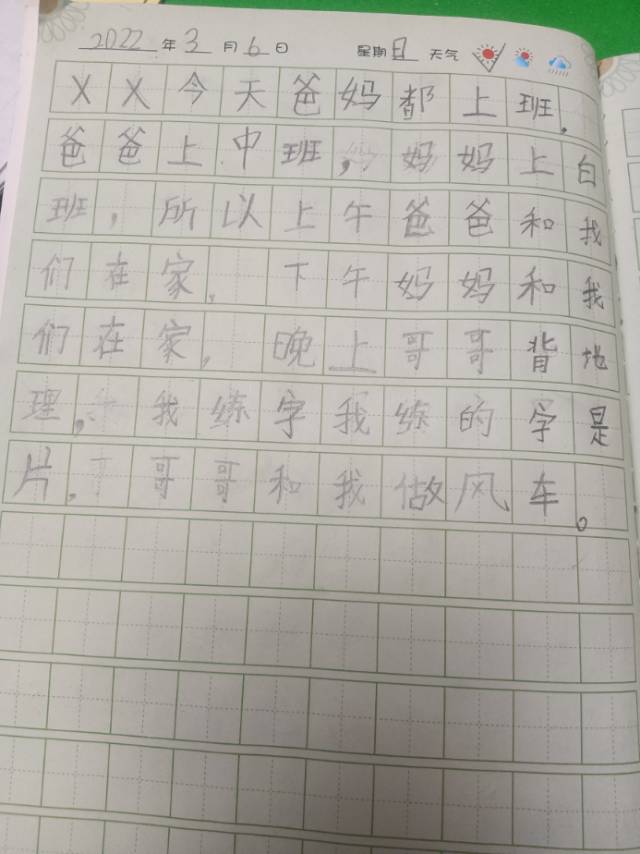 2022年3月6日 星期日 天气
X X 今天爸妈都上班.
爸爸上中班,妈妈上白
班,所以上午爸爸和我
们在家, 下午妈妈和我
们在家, 晚上哥哥背地
理, 我练字我练的字是
片. 哥哥和我做风车。